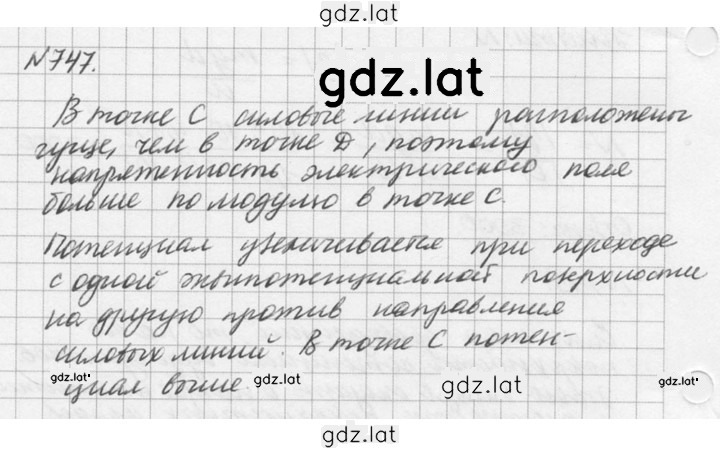 gdz.lat
N747.
gdz.lat
В точке С силовые линии расположены
гуще, чем в точке D, поэтому
напряженность электрического поля
больше по модулю в точке С.
Потенциал увеличивается при переходе
с одной эквипотенциальной поверхности
на другую против направления
силовых линий. В точке С потен-
циал выше.
gdz.lat gdz.lat gdz.lat gdz.lat
gdz.lat